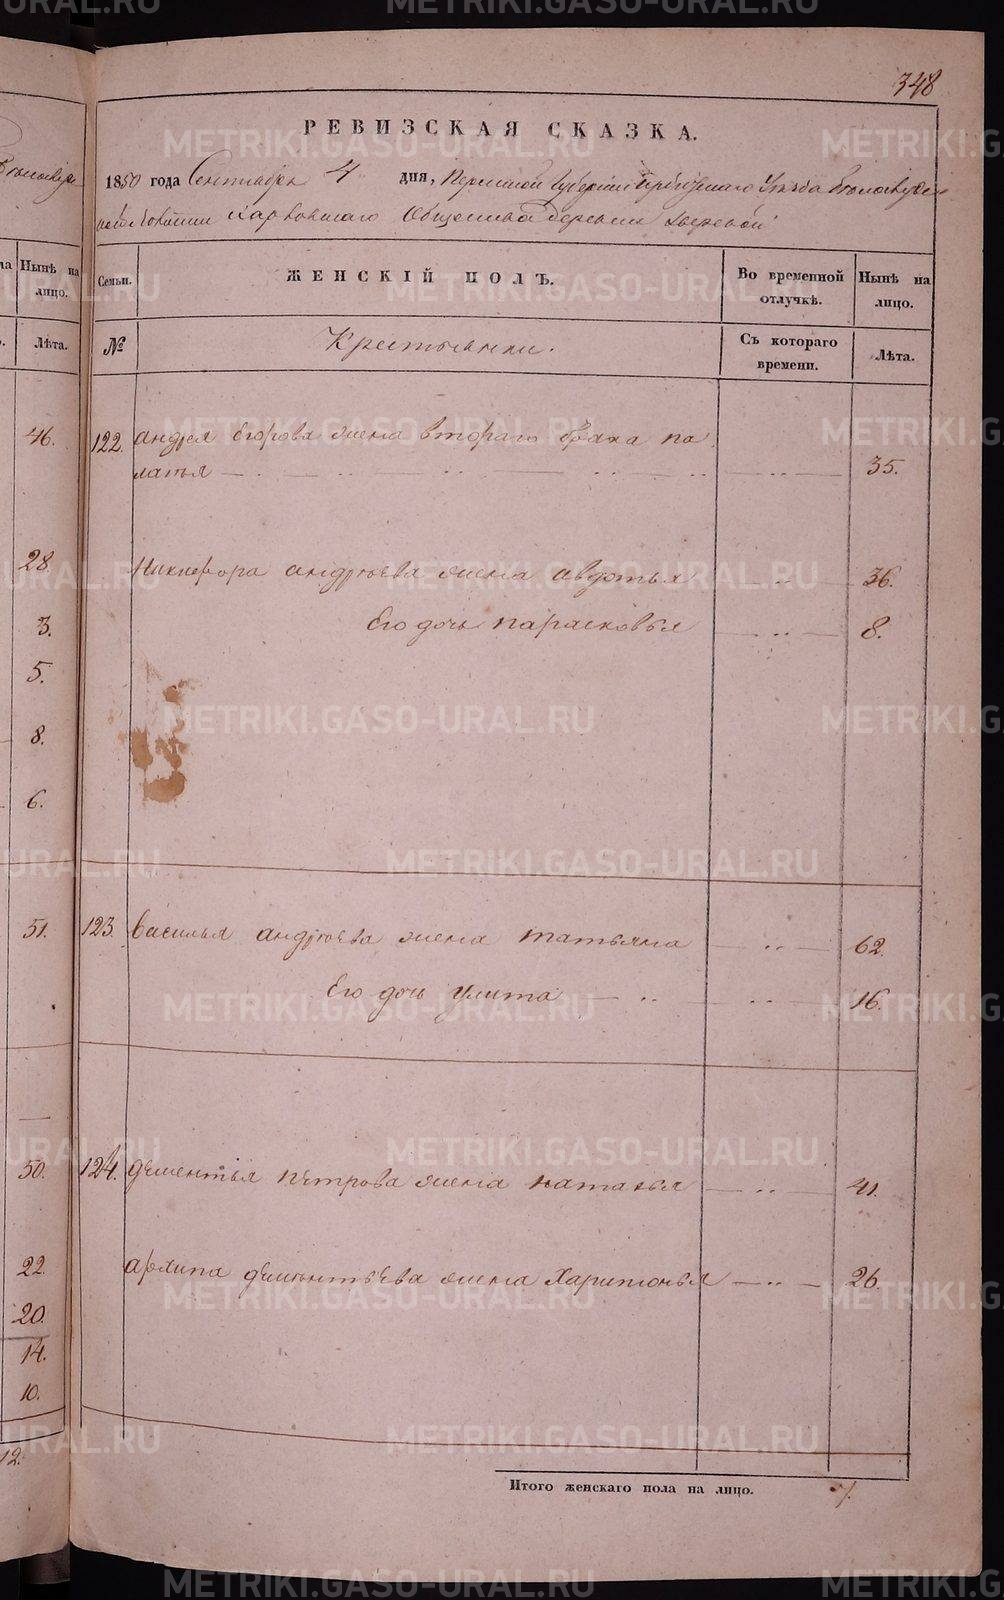 348
РЕВИЗСКАЯ СКАЗКА.
1850 года Сентября 4 дня, Пермской Губернии Ирбитскаго Уѣзда
Харловскаго Общества деревни Зверевой
Нынѣ на лицо.
Лѣта.
Семьи.
ЖЕНСКІЙ ПОЛЪ.
Во временной отлучкѣ.
Нынѣ на лицо.
№
Крестьянки.
Съ котораго времени.
Лѣта.
46.
122. андрея егорова жена втораго брака па
латья — 35.
28. Никифора андрѣева жена авдотья — 36.
3. Его дочь парасковья — 8.
5.
8.
6.
51. 123. василья андрѣева жена татьяна — 62.
Его дочь улита — 16.
50. 124. дементья петрова жена наталья — 41.
22. архипа дементьева жена Харитонья — 26.
20.
14.
10.
12.
Итого женскаго пола на лицо. 7.
METRIKI.GASO-URAL.RU